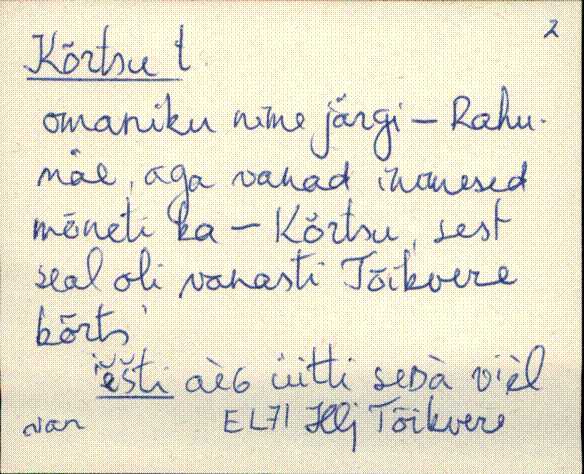 2
Kõrtsu t
omaniku nime järgi – Rahu-
mäe, aga vanad inimesed
mõneti ka – Kõrtsu, sest
seal oli vanasti Tõikvere
kõrts
ešti aèG üitti seDà vièl
van
EL71 Hlj Tõikvere